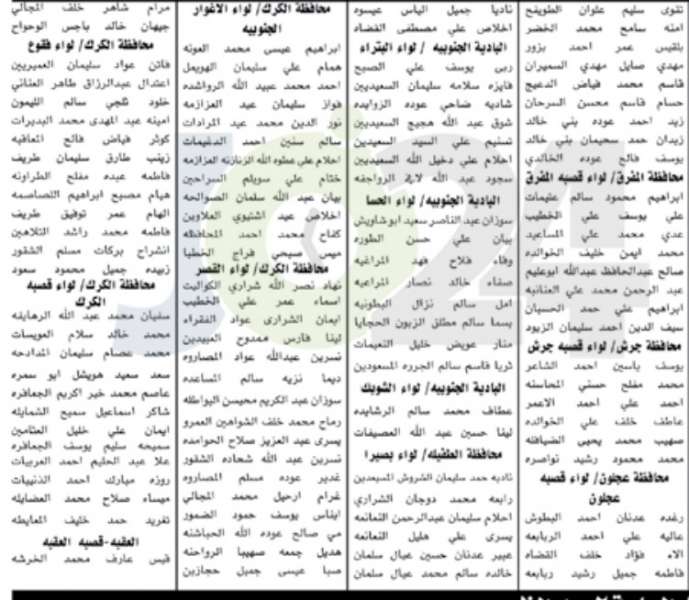 تقوى سليم علوان الطويفح
امنه سامح محمد الخضر
بلقيس عمر احمد بزور
مهدي صايل مهدي السميران
قاسم محمد فياض الدعيج
حسام قاسم محسن السرحان
زيد احمد عوده بني خالد
زيدان حمد سحيمان بني خالد
يوسف فالح عوده الخالدي
محافظة المفرق/ لواء قصبه المفرق
ابراهيم محمود سالم عليمات
علي يوسف علي الخطيب
عدي محمد علي المساعيد
محمد ايمن خليف الخوالده
صالح عبدالحافظ عبدالله ابوعليم
عبد الرحمن محمد علي العنانبه
ابراهيم علي حمد الحسبان
سيف الدين احمد سليمان الزيود
محافظة جرش/ لواء قصبه جرش
يوسف ياسين احمد الشاعر
محمد مفلح حسني المحاسنه
احمد علي احمد الاعمر
عاطف خلف علي الخوالده
صهيب محمد يحيى الضيافله
محمد محمود رشيد نواصره
محافظة عجلون/ لواء قصبه
عجلون
رغده عدنان احمد البطوش
عاليه علي احمد الربابعه
الاء فؤاد خلف القضاه
فاطمه جميل رشيد ربابعه
ناديا جميل الياس عيسود
اخلاص علي مصطفى القضاه
البادية الجنوبيه /لواء البتراء
ربى يوسف علي الصبح
فايزه سلامه سليمان السعيديين
شاديه ضاحي عوده الزوايده
شوق عبد الله هجيج السعيديين
تسنيم علي السيد السعيدين
احلام علي دخيل الله السعيديين
سجود عبد الله لافي الرواجفه
البادية الجنوبيه/ لواء الحسا
سوزان عبد الناصر سعيد ابو شاويش
بيان علي حسن الطوره
وفاء فلاح فهد المراغيه
صفاء خالد نصار المراعيه
امل سالم نزال البطونيه
بسما سالم مطلق الزبون الحجايا
منار عويض خليل النعيمات
ثريا قاسم سالم الجرره المسعودين
البادية الجنوبيه/ لواء الشوبك
عطاف محمد سالم الرشايده
لينا حسين عبد الله العصيفات
محافظة الطفيله/ لواء بصيرا
ناديه حمد سليمان الشروش المسيعدين
رابعه محمد دوجان الشراري
احلام سليمان عبدالرحمن النعانعه
يسرى علي هليل النعانعه
عبير عدنان حسين عيال سلمان
خالده سالم محمد عيال سلمان
محافظة الكرك/ لواء الاغوار
الجنوبيه
ابراهيم عيسى محمد العونه
همام علي سليمان الهويمل
احمد محمد عبيد الله الرواشده
فواز سليمان عيد العزازمه
نور الدين محمد عيد المرادات
سالم سنين احمد الدغيمات
احلام علي عطوه الله الزنازنه العزازمه
ختام علي سويلم السراحين
بيان عبد الله سلمان الصوالحه
اخلاص عيد اشتيوي العلاوين
كفاح محمد احمد المحافظه
ميس صبحي فراج الخطبا
محافظة الكرك/ لواء القصر
نهاد نصر الله شراري الكواليت
اسماء عمر علي الخطيب
ايمان الشراري عواد الفقراء
لينا فارس ممدوح العبيدين
نسرين عبدالله عواد المصاروه
ديما نزيه سالم المساعده
سوزان عبد الكريم محيسن البواطله
رماح محمد خلف الشواهين العمرو
يسرى عبد العزيز صلاح الحوامده
نسرين عبد الله شحاده الشقور
غدير عوده مسلم المصاروه
غرام ارحيل محمد المجالي
ايناس يوسف حمود الضمور
مي صالح عوده الله الحباشنه
هديل جمعه سهيبا الرواحنه
صبا عيسى جميل حجازين
مرام شاهر خلف المجالي
جيهان خالد باجس الوحواح
محافظة الكرك/ لواء فقوع
فاتن عواد سليمان العميريين
اعتدال عبدالرزاق طاهر العناني
خلود ثلجي سالم الليمون
امينه عبد المهدي محمد البديرات
كوثر فياض فالح المعاقبه
زينب طارق سليمان طريف
فاطمه عبده مفلح الطراونه
هيام مصبح ابراهيم القصاصمه
الهام عمر توفيق طريف
فاطمه محمد راشد التلاهين
انشراح بركات مسلم الشقور
زبيده جميل محمود سعود
محافظة الكرك/ لواء قصبه
الكرك
سفيان محمد عبد الله الرهايفه
محمد خالد سلام العويسات
محمد عصام سليمان المدادحه
سعد سعيد هويشل ابو سمره
عاصم محمد خير اكريم الجعافره
شاكر اسماعيل سميح الشمايله
ايمان علي خليل العثامين
سميحه سليم يوسف الجعافره
علا عبد الحليم احمد العربيات
روزه مبارك احمد الذنيبات
ميساء صلاح محمد العضايله
تغريد حمد خليف المعايطه
العقبه-قصبه العقبه
قيس عارف محمد الخرشه